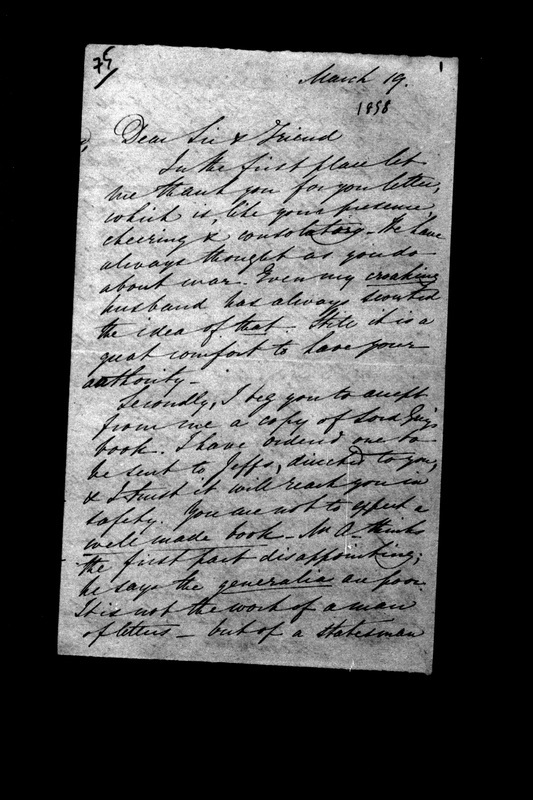 75
1
March 19.
1858
Dear Sir & Friend
In the first place let
me thank you for you letter,
which is, like your presence,
cheering & consolatory - We have
always thought as you do
about war. Even my croaking
husband has always scouted
the idea of that. Still it is a
great comfort to have your
authority -
Secondly, I beg you to accept
from me a copy of Lord Grey's
book. I have ordered one to
be sent to Jeffs, directed to you,
& I trust it will reach you in
safety. You are not to expect a
well made book - Mr A. thinks
the first part disappointing;
he says the generalia are poor.
It is not the work of a man
of letters - but of a statesman